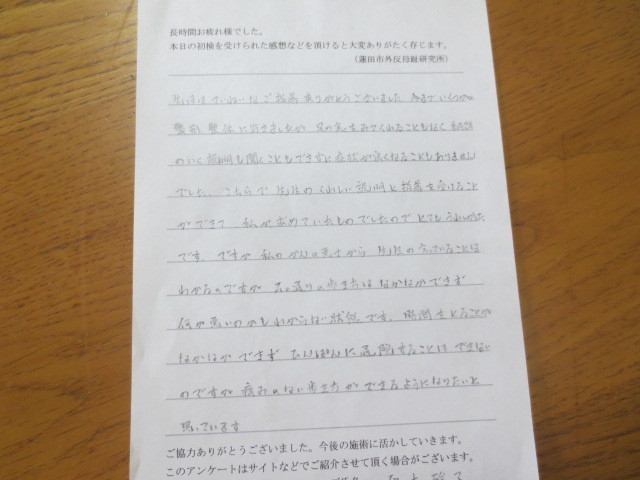 長時間お疲れ様でした。
本日の初検を受けられた感想などを頂けると大変ありがたく存じます。
（蓮田市外反母趾研究所）
先生はていねいなご指導ありがとうございました 今まで いくつかの
整形 整体に行きましたが 足の先をみてくれることもなく 納得
のいく説明も聞くこともできずに症状が良くなることもありません
でした。 こちらで 先生のくわしい説明と指導を受けること
ができて 私が求めていたものでしたので とても うれしかった
です ですが 私の から 先生の ることは
わかるのですが 通りの歩き方は なかなかできず
何が悪いのかもわからない状態です。 時間をとることが
なかなか できず ひんぱんに通院することは できない
のですが 痛みのない歩き方ができるようになりたいと
思っています
ご協力ありがとうございました。今後の施術に活かしていきます。
このアンケートはサイトなどでご紹介させて頂く場合がございます。